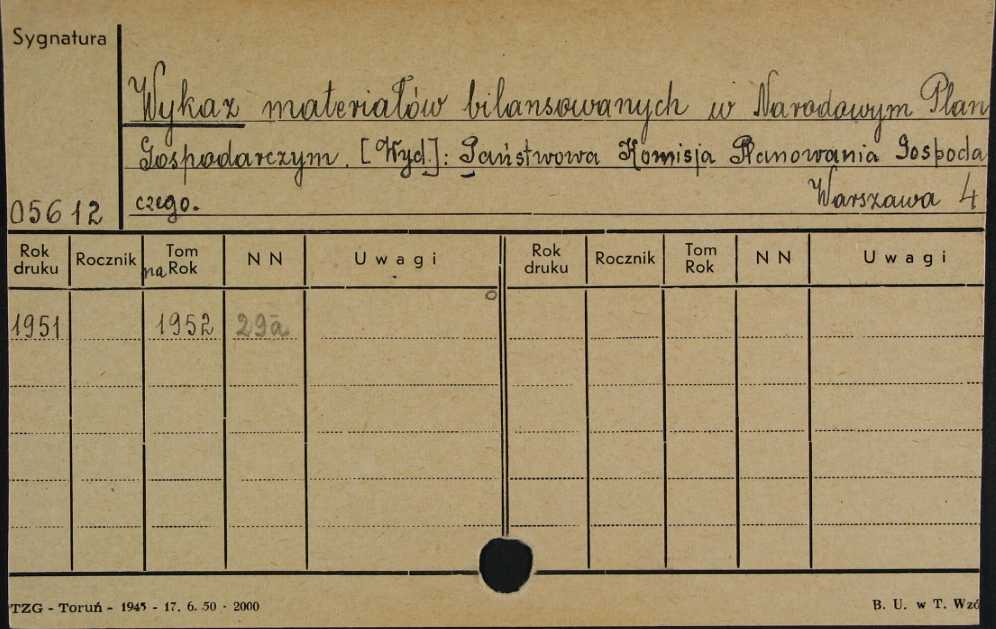 Sygnatura
Wykaz materiałów bilansowanych w Narodowym Plan
Gospodarczym. [Wyd.]: Państwowa Komisja Planowania Gospoda
czego.
Warszawa 4
05612
Rok druku Rocznik Tom na Rok N N Uwagi Rok druku Rocznik Tom Rok N N Uwagi
1951 1952 29a
TZG - Toruń - 1945 - 17. 6. 50 - 2000
B. U. w T. Wzó